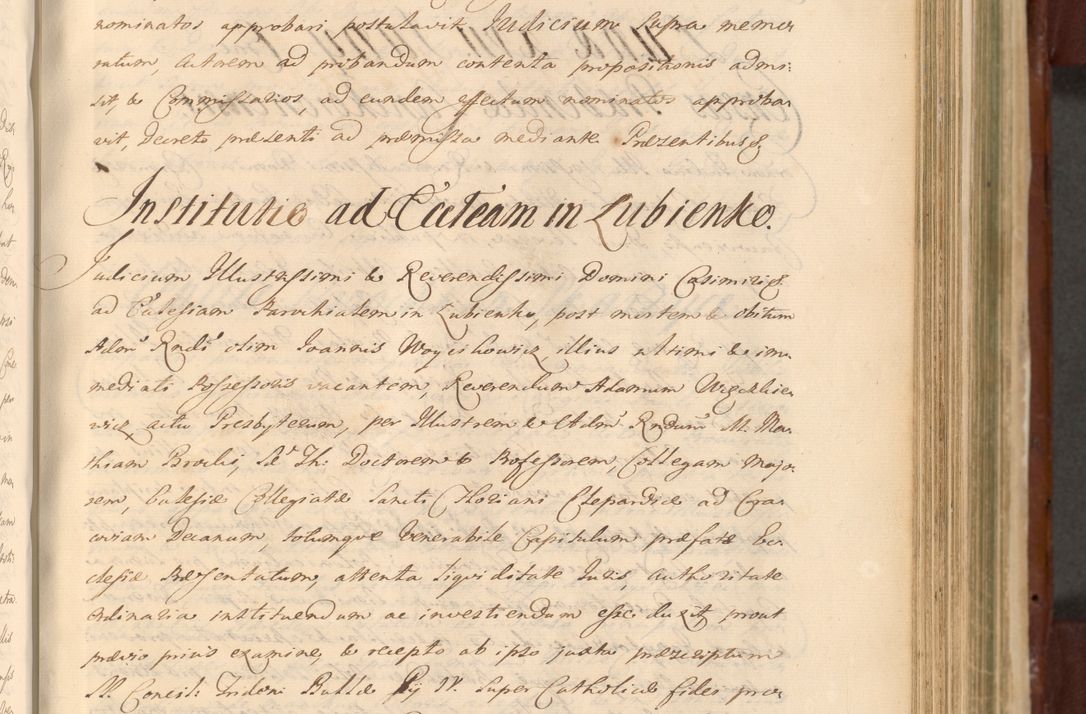 nominatos approbari postulavit. Judicium supra memo¬
ratum, Autorem ad probandum contenta propositionis admi¬
sit, & Commissarios, ad eundem effectum nominatos approba¬
vit, Decreto præsenti ad præmissa mediante. Præsentibus &
Institutio ad Ecclesiam in Lubienko.
Judicium Illustrissimi & Reverendissimi Domini Casimiri &
ad Ecclesiam Parochialem in Lubienko, post mortem & obitum
Admo Rndi olim Joannis Woycikowicz illius ultimi & im¬
mediati Possessoris vacantem, Reverendum Adamum
wicz, actu Presbyterum, per Illustrem & Adm Rndum M. Ma¬
thiam Sae Th: Doctorem & Professorem, Collegam Majo¬
rem, Ecclesiæ Collegiatæ Sancti Floriani Clepardiæ ad Cra¬
coviam Decanum, totumque Venerabile Capitulum præfatæ Ec¬
clesiæ Præsentatum, attenta liquiditate Juris, Authoritate
ordinaria instituendum ac investiendum esse duxit, prout
prævio prius examine, & recepto ab ipso juxta præscriptum
S. Concil: Tridni Bullæ Pij IV. super Catholicæ fidei pro¬